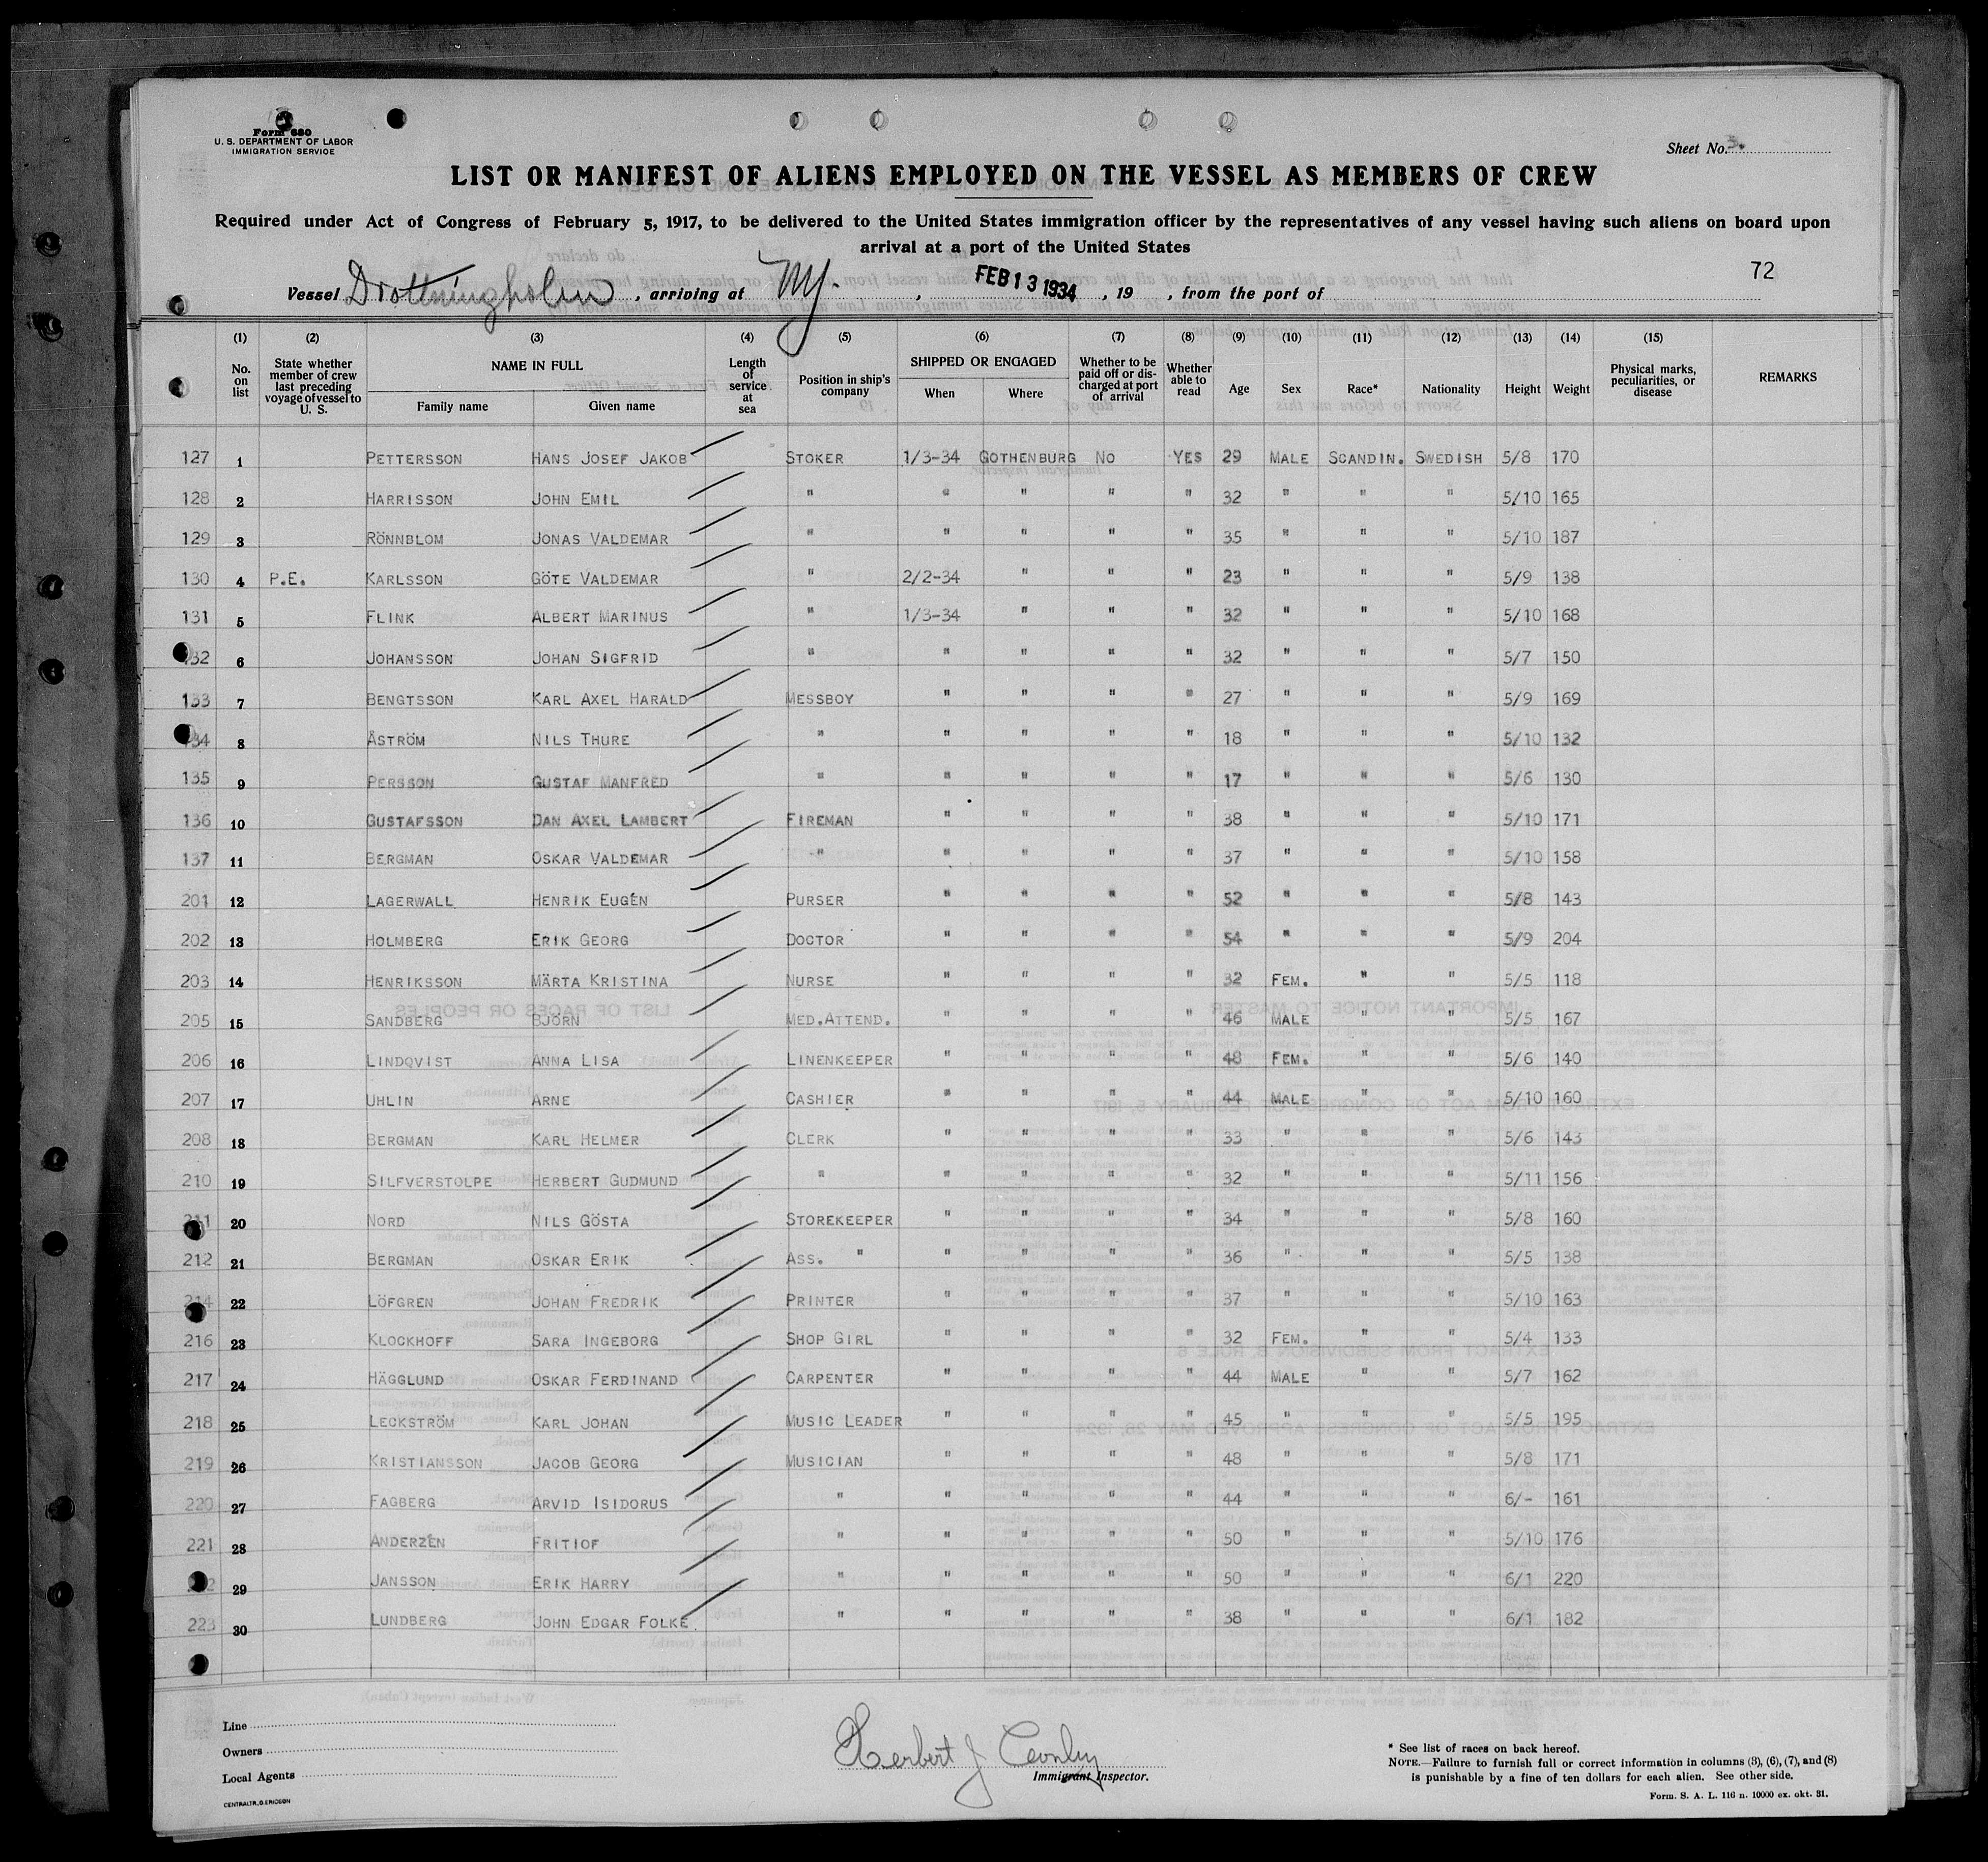 Form 680
U. S. DEPARTMENT OF LABOR
IMMIGRATION SERVICE
Sheet No.
LIST OR MANIFEST OF ALIENS EMPLOYED ON THE VESSEL AS MEMBERS OF CREW
Required under Act of Congress of February 5, 1917, to be delivered to the United States immigration officer by the representatives of any vessel having such aliens on board upon
arrival at a port of the United States
72
Vessel Drottningholm, arriving at NY. , FEB 13 1934 , 19 , from the port of
(1) (2) (3) (4) (5) (6) (7) (8) (9) (10) (11) (12) (13) (14) (15)
No. on list State whether member of crew last preceding voyage of vessel to U. S. NAME IN FULL Family name Given name Length of service at sea Position in ship's company SHIPPED OR ENGAGED When Where Whether to be paid off or discharged at port of arrival Whether able to read Age Sex Race* Nationality Height Weight Physical marks, peculiarities, or disease REMARKS
127 1 PETTERSSON HANS JOSEF JAKOB STOKER 1/3-34 GOTHENBURG NO YES 29 MALE SCANDIN. SWEDISH 5/8 170
128 2 HARRISSON JOHN EMIL " " " " " 32 " " " 5/10 165
129 3 RÖNNBLOM JONAS VALDEMAR " " " " " 35 " " " 5/10 187
130 4 P.E. KARLSSON GÖTE VALDEMAR " 2/2-34 " " " 23 " " " 5/9 138
131 5 FLINK ALBERT MARINUS " 1/3-34 " " " 32 " " " 5/10 168
132 6 JOHANSSON JOHAN SIGFRID " " " " " 32 " " " 5/7 150
133 7 BENGTSSON KARL AXEL HARALD MESSBOY " " " " 27 " " " 5/9 169
134 8 ÅSTRÖM NILS THURE " " " " " 18 " " " 5/10 132
135 9 PERSSON GUSTAF MANFRED " " " " " 17 " " " 5/6 130
136 10 GUSTAFSSON DAN AXEL LAMBERT FIREMAN " " " " 38 " " " 5/10 171
137 11 BERGMAN OSKAR VALDEMAR " " " " " 37 " " " 5/10 158
201 12 LAGERWALL HENRIK EUGÉN PURSER " " " " 52 " " " 5/8 143
202 13 HOLMBERG ERIK GEORG DOCTOR " " " " 54 " " " 5/9 204
203 14 HENRIKSSON MÄRTA KRISTINA NURSE " " " " 32 FEM. " " 5/5 118
205 15 SANDBERG BJÖRN MED.ATTEND. " " " " 46 MALE " " 5/5 167
206 16 LINDQVIST ANNA LISA LINENKEEPER " " " " 48 FEM. " " 5/6 140
207 17 UHLIN ARNE CASHIER " " " " 44 MALE " " 5/10 160
208 18 BERGMAN KARL HELMER CLERK " " " " 33 " " " 5/6 143
210 19 SILFVERSTOLPE HERBERT GUDMUND " " " " " 32 " " " 5/11 156
211 20 NORD NILS GÖSTA STOREKEEPER " " " " 34 " " " 5/8 160
212 21 BERGMAN OSKAR ERIK ASS. " " " " " 36 " " " 5/5 138
214 22 LÖFGREN JOHAN FREDRIK PRINTER " " " " 37 " " " 5/10 163
216 23 KLOCKHOFF SARA INGEBORG SHOP GIRL " " " " 32 FEM. " " 5/4 133
217 24 HÄGGLUND OSKAR FERDINAND CARPENTER " " " " 44 MALE " " 5/7 162
218 25 LECKSTRÖM KARL JOHAN MUSIC LEADER " " " " 45 " " " 5/5 195
219 26 KRISTIANSSON JACOB GEORG MUSICIAN " " " " 48 " " " 5/8 171
220 27 FAGBERG ARVID ISIDORUS " " " " " 44 " " " 6/- 161
221 28 ANDERZÉN FRITIOF " " " " " 50 " " " 5/10 176
29 JANSSON ERIK HARRY " " " " " 50 " " " 6/1 220
223 30 LUNDBERG JOHN EDGAR FOLKE " " " " " 38 " " " 6/1 182
Line
Owners
Local Agents
CENTRALTR. G. ERICSON
Herbert J
Immigrant Inspector.
* See list of races on back hereof.
NOTE.—Failure to furnish full or correct information in columns (3), (6), (7), and (8)
is punishable by a fine of ten dollars for each alien. See other side.
Form. S. A. L. 116 n. 10000 ex. okt. 31.